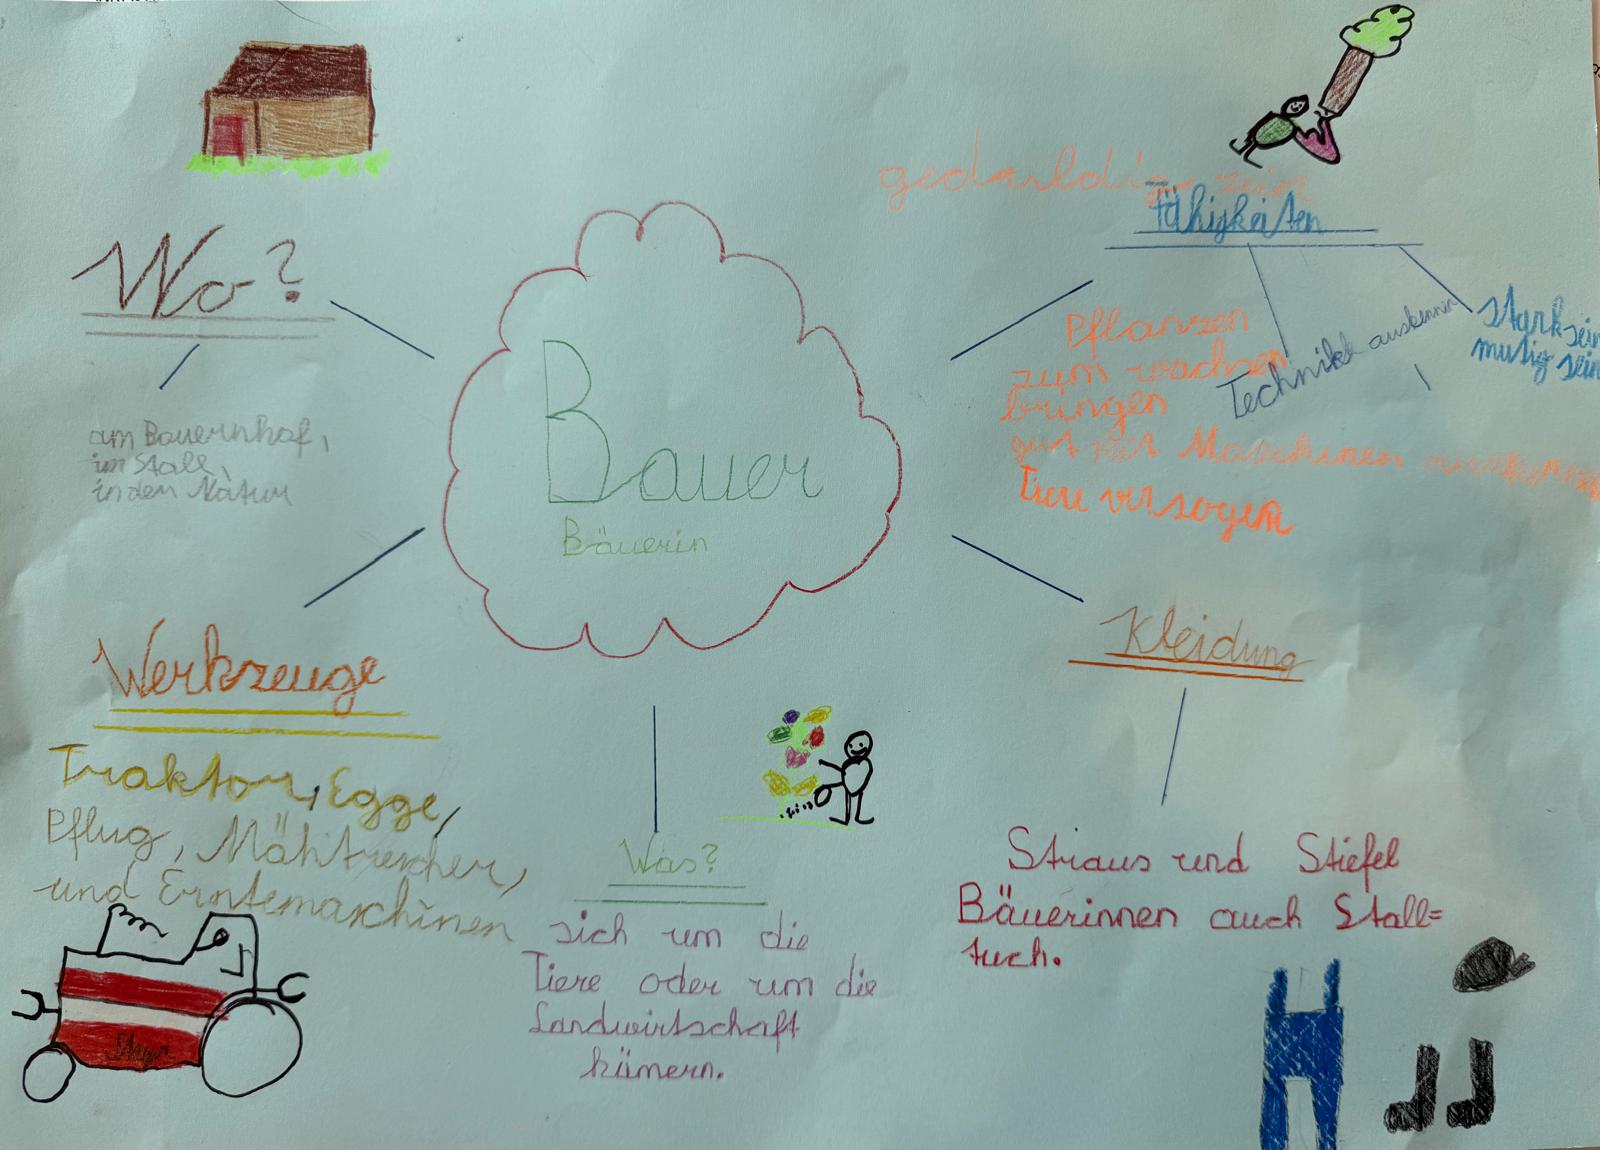 Wo?
am Bauernhof,
im Stall,
in der Natur
Bauer
Bäuerin
geduldig sein
Fähigkeiten
stark sein
mutig sein
Technikk auskennen
Pflanzen
zum wachsen
bringen
gut mit Maschinen auskennen
Tiere versogen
Werkzeuge
Traktor, Egge,
Pflug, Mähtrescher,
und Erntemaschinen
Steyr
Was?
sich um die
Tiere oder um die
Landwirtschaft
kümern.
Kleidung
Straus und Stiefel
Bäuerinnen auch Stall=
tuch.